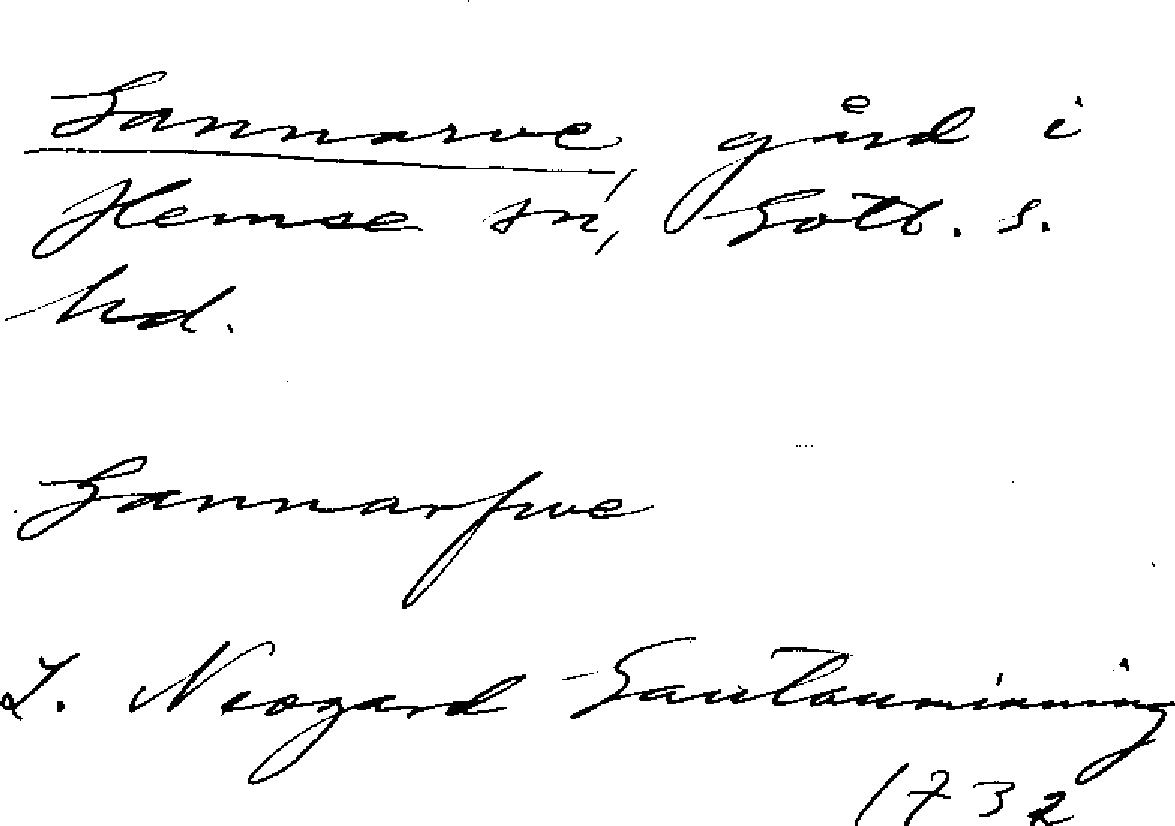 Gannarve gård i
Hemse sn, Gotl. s.
hd.
Gannarfve
J. Neogard Gautauminning
1732